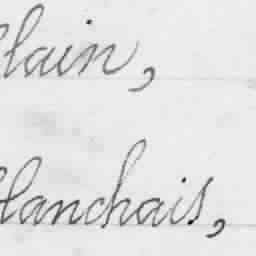 lain,
lanchais,